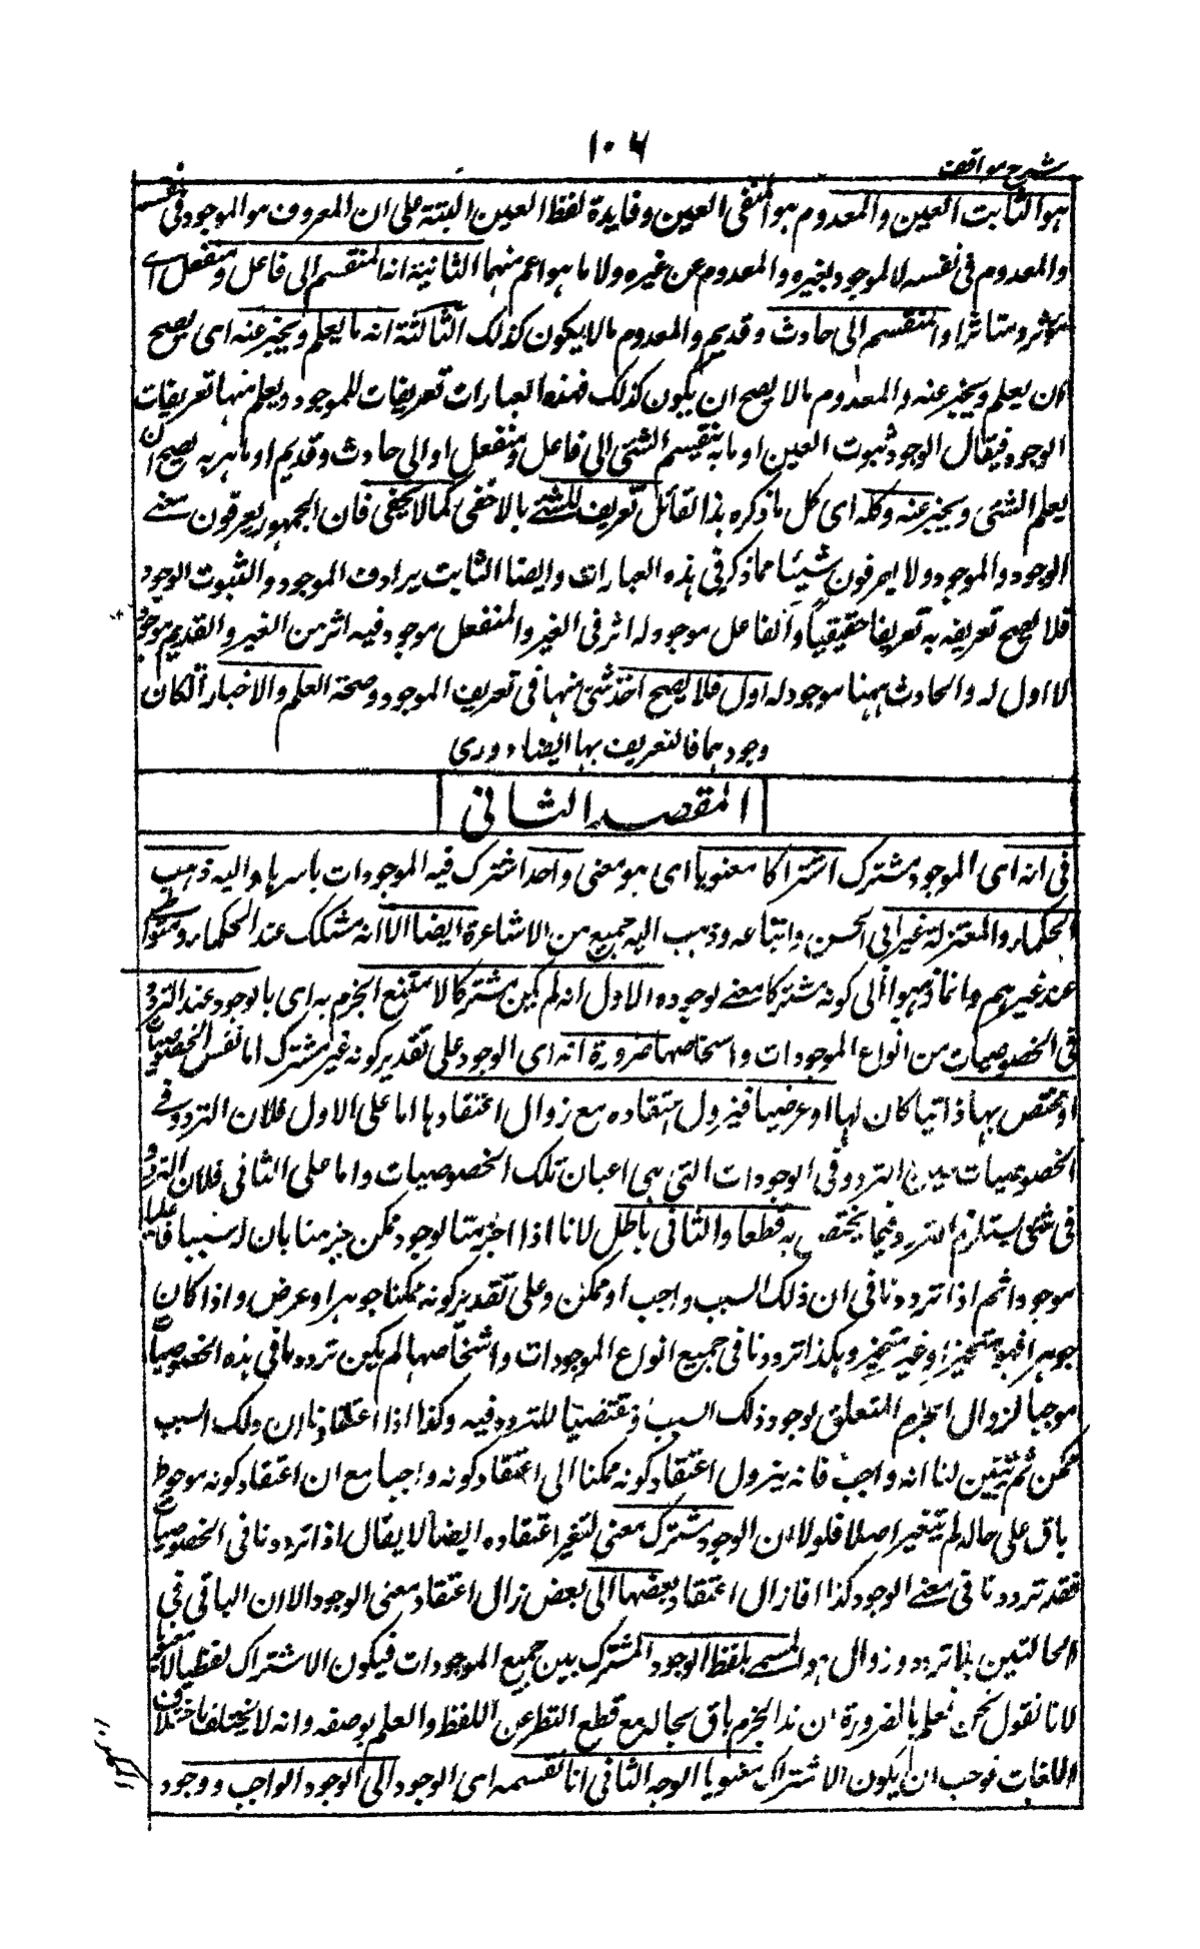 ١٠٦
شرح مواقف
هو الثابت العين والمعدوم هو المنفى العين وفايدة لفظ العين البتة على ان المعروف هو الموجود فى نفسه
والمعدوم فى نفسه لا الموجود لغيره والمعدوم عن غيره ولا ما هو اعم منهما الثانية انه المنقسم الى فاعل ومنفعل اى
مؤثر ومتاثر او المنقسم الى حادث وقديم والمعدوم مالا يكون كذلك الثالثة انه ما يعلم ويخبر عنه اى يصح
ان يعلم ويخبر عنه والمعدوم مالا يصح ان يكون كذلك فهذه العبارات تعريفات للموجود ويعلم منها تعريفات
الوجود فيقال الوجود ثبوت العين او ما به ينقسم الشئ الى فاعل ومنفعل او الى حادث وقديم او ما هر به يصح ان
يعلم الشئ ويخبر عنه وكله اى كل ما ذكره هذا القائل تعريف للشئ بالاخفى كما لا يخفى فان الجمهور يعرفون معنے
الوجود والموجود ولا يعرفون شيئا مما ذكر فى هذه العبارات وايضا الثابت يرادف الموجود والثبوت الوجود
فلا يصح تعريفه به تعريفا حقيقيا والفاعل موجود له اثر فى الغير والمنفعل موجود فيه اثر من الغير والقديم موجود
لا اول له والحادث ههنا موجود له اول فلا يصح اخذ شئ منها فى تعريف الموجود وصحة العلم والاخبار امكان
وجودهما فالتعريف بها ايضا دورى
المقصد الثانى
فى انه اى الموجود مشترك اشتراكا معنويا اى هو معنى واحد اشترك فيه الموجودات باسرها واليه ذهب
الحكماء والمعتزلة غير ابى الحسن واتباعه وذهب اليه جميع من الاشاعرة ايضا الا انه مشكك عند الحكماء ومتواطئ
عند غيرهم وانما ذهبوا الى كونه مشتركا معنے لوجوه الاول انه لم يكن مشتركا لامتنع الجزم به اى بالوجود عند التردد
فى الخصوصيات من انواع الموجودات واشخاصها ضرورة انه اى الوجود على تقدير كونه غير مشترك اما نفس الخصوصيات
او مختص بها ذاتيا كان لها او عرضيا فيزول اعتقاده مع زوال اعتقادها اما على الاول فلان التردد فے
الخصوصيات عين التردد فى الوجودات التى هى اعيان تلك الخصوصيات واما على الثانى فلان التردد
فى شئ يستلزم التردد فيما يختص به قطعا والثانى باطل لانا اذا اجزمنا لوجود ممكن جزمنا بان لسببيا فاعليا
موجودا ثم اذا ترددنا فى ان ذلك السبب واجب او ممكن وعلى تقدير كونه ممكنا جوهر او عرض واذا كان
جوهرا فهو متحيز او غير متحيز وهكذا ترددنا فى جميع انواع الموجودات واشخاصها لم يكن ترددنا فى هذه الخصوصيات
موجبا لزوال الجزم المتعلق بوجود ذلك السبب ومقتضيا للتردد فيه وكذا اذا اعتقدنا ان ذلك السبب
ممكن ثم تبين لنا انه واجب فانه يزول اعتقاد كونه ممكنا الى اعتقاد كونه واجبا مع ان اعتقاد كونه موجودا
باق على حاله لم يتغير اصلا فلولا ان الوجود مشترك معنى لتغير اعتقاده ايضا لا يقال اذا ترددنا فى الخصوصيات
فقد ترددنا فى معنے الوجود كذا اذا زال اعتقاد بعضها الى بعض زال اعتقاد معنى الوجود الا ان الباقى فى
الحالتين بلا تردد وزوال هو المسمے بلفظ الوجود المشترك بين جميع الموجودات فيكون الاشتراك لفظيا لا معنويا
لانا نقول نحن نعلم بالضرورة ان هذا الجزم باق بحاله مع قطع النظر عن اللفظ والعلم بوضعه وانه لا يختلف باختلاف
اللغات فوجب ان يكون الاشتراك معنويا الوجه الثانى انا نقسمه اى الوجود الى الوجود الواجب ووجود